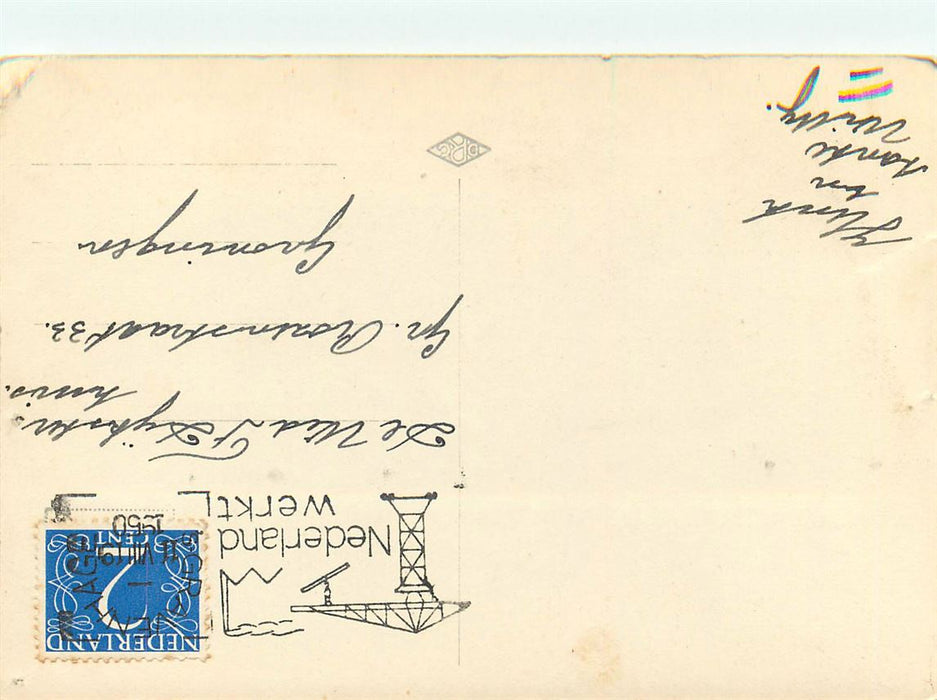 Henk
en
tante
Willy.
NEDERLAND
2
CENT
11 VIII 19
1950
Nederland
werkt
De Wed Dijkster-
huis.
Gr. Rozenstraat 33.
Groningen